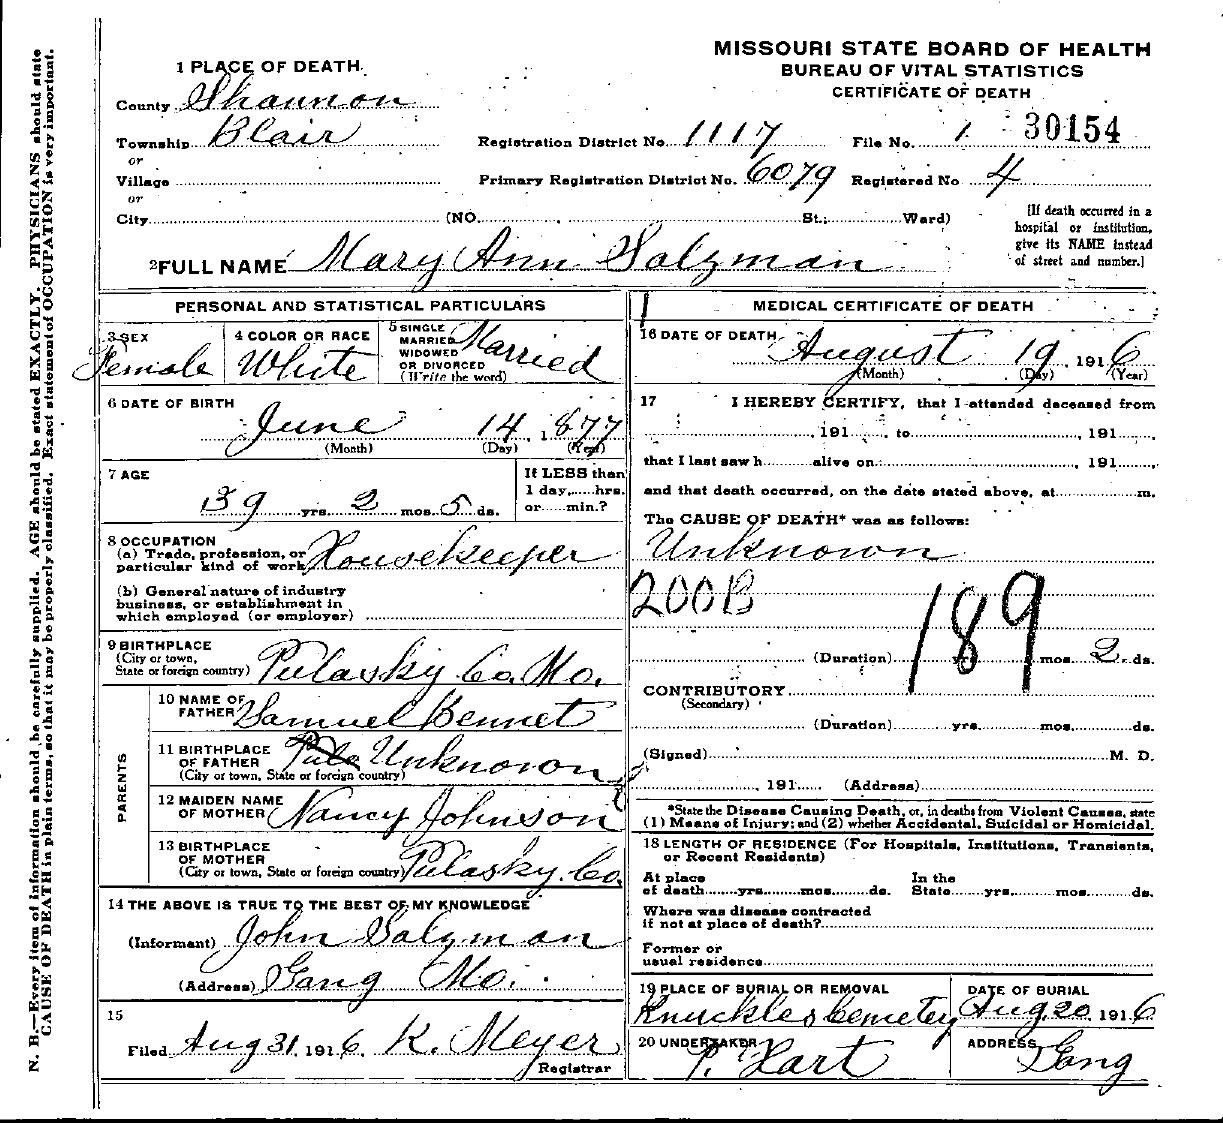 MISSOURI STATE BOARD OF HEALTH
BUREAU OF VITAL STATISTICS
CERTIFICATE OF DEATH
1 PLACE OF DEATH
County Shannon
Township Blair
or
Village
or
City (NO. St.; Ward)
Registration District No. 1117
File No. 30154
Primary Registration District No. 6079
Registered No 4
(If death occurred in a
hospital or institution,
give its NAME instead
of street and number.)
2 FULL NAME Mary Ann Salzman
PERSONAL AND STATISTICAL PARTICULARS
3 SEX
Female
4 COLOR OR RACE
White
5 SINGLE
MARRIED
WIDOWED
OR DIVORCED
(Write the word)
Married
6 DATE OF BIRTH
June 14, 1877
(Month) (Day) (Year)
7 AGE
39 yrs. 2 mos. 5 ds.
If LESS than
1 day,......hrs.
or......min.?
8 OCCUPATION
(a) Trade, profession, or
particular kind of work Housekeeper
(b) General nature of industry
business, or establishment in
which employed (or employer)
9 BIRTHPLACE
(City or town,
State or foreign country)
Pulasky Co. Mo.
PARENTS
10 NAME OF
FATHER Samuel Bennet
11 BIRTHPLACE
OF FATHER
(City or town, State or foreign country)
Unknown
12 MAIDEN NAME
OF MOTHER Nancy Johnson
13 BIRTHPLACE
OF MOTHER
(City or town, State or foreign country) Pulasky. Co.
14 THE ABOVE IS TRUE TO THE BEST OF MY KNOWLEDGE
(Informant) John Salzman
(Address) Gang Mo.
15
Filed Aug 31, 1916. K. Meyer
Registrar
MEDICAL CERTIFICATE OF DEATH
16 DATE OF DEATH
August 19, 1916
(Month) (Day) (Year)
17 I HEREBY CERTIFY, that I attended deceased from
, 191......, to , 191......,
that I last saw h alive on , 191......,
and that death occurred, on the date stated above, at m.
The CAUSE OF DEATH* was as follows:
Unknown
200B
189
(Duration) mos. 2 ds.
CONTRIBUTORY
(Secondary)
(Duration) yrs. mos. ds.
(Signed) M. D.
, 191 (Address)
*State the Disease Causing Death, or, in deaths from Violent Causes, state
(1) Means of Injury; and (2) whether Accidental, Suicidal or Homicidal.
18 LENGTH OF RESIDENCE (For Hospitals, Institutions, Transients,
or Recent Residents)
At place
of death yrs. mos. ds.
In the
State yrs. mos. ds.
Where was disease contracted
if not at place of death?
Former or
usual residence
19 PLACE OF BURIAL OR REMOVAL
Knuckles Cemetery
DATE OF BURIAL
Aug. 20 1916
20 UNDERTAKER
P. Hart
ADDRESS
Gang
N. B.—Every item of information should be carefully supplied. AGE should be stated EXACTLY. PHYSICIANS should state
CAUSE OF DEATH in plain terms, so that it may be properly classified. Exact statement of OCCUPATION is very important.